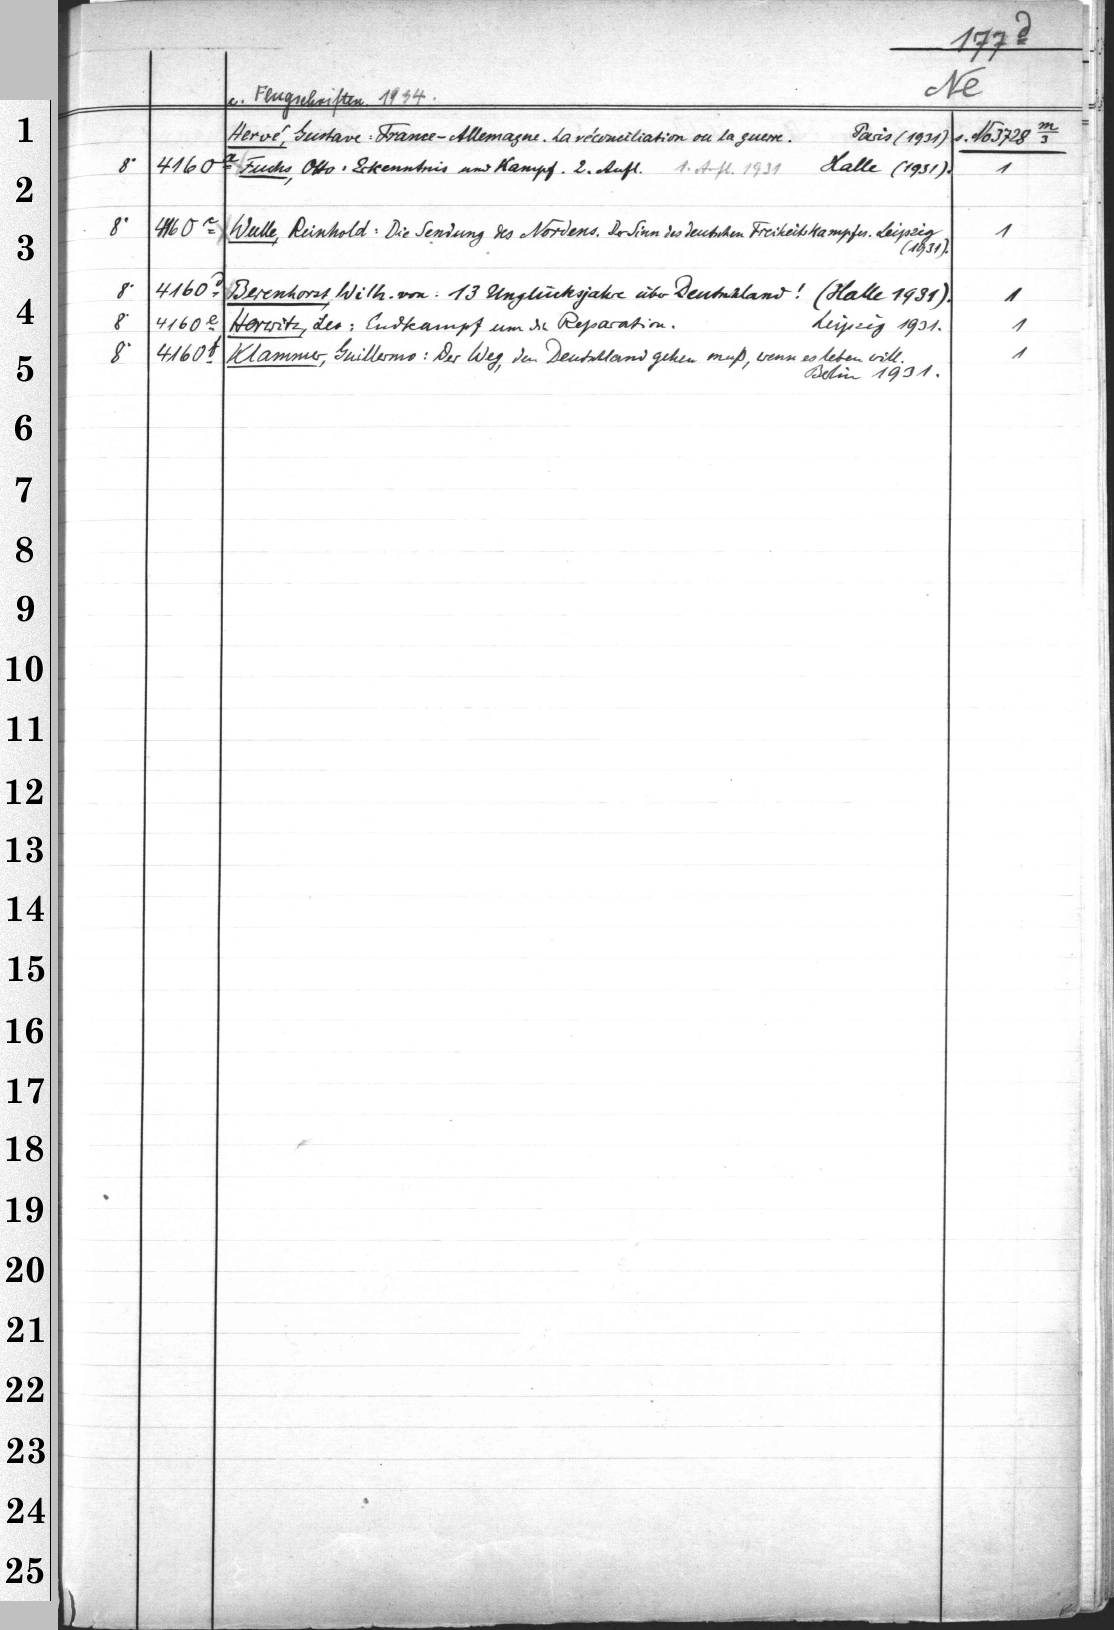 177 d
Ne
c. Flugschriften 1934.
1
Hervé, Gustave: France-Allemagne. La réconciliation ou la guerre. Paris (1931) s. No 3728 m/3
8° 4160 a Fuchs, Otto: Erkenntnis und Kampf. 2. Aufl. 1. Aufl. 1931 Halle (1931). 1
2
8° 4160 c Wulle, Reinhold: Die Sendung des Nordens. Der Sinn des deutschen Freiheitskampfes. Leipzig 1
3
(1931).
8° 4160 d Berenhorst, Wilh. von: 13 Unglücksjahre über Deutschland! (Halle 1931). 1
4
8° 4160 e Horwitz, Leo: Endkampf um die Reparation. Leipzig 1931. 1
8° 4160 f Klammer, Guillermo: Der Weg, den Deutschland gehen muß, wenn es leben will. 1
5
Berlin 1931.
6
7
8
9
10
11
12
13
14
15
16
17
18
19
20
21
22
23
24
25